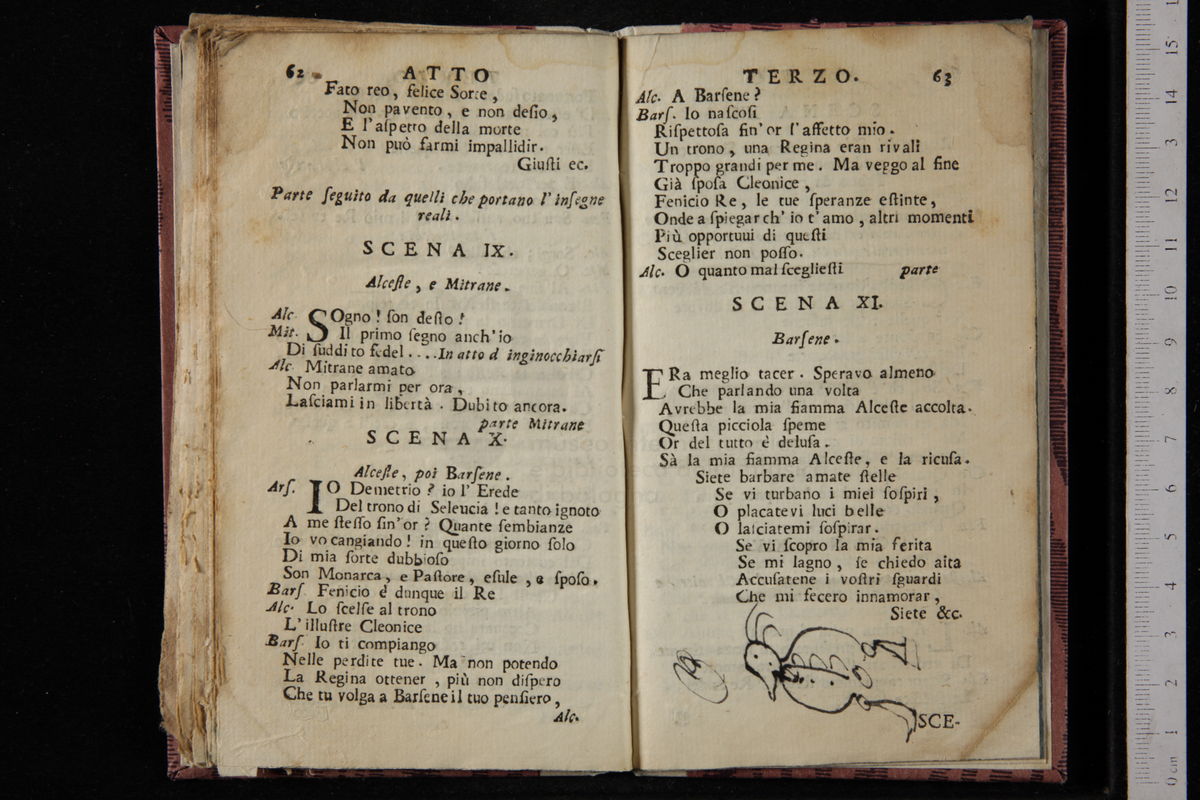 62 ATTO
Fato reo, felice Sorte,
Non pavento, e non desio,
E l'aſpetto della morte
Non può farmi impallidir.
Giuſti ec.
Parte ſeguito da quelli che portano l'Inſegne
reali.
SCENA IX.
Alceſte, e Mitrane.
Alc. SOgno! ſon deſto!
Mit. Il primo ſegno anch'io
Di ſuddito fedel....In atto d inginocchiarſi
Alc Mitrane amato
Non parlarmi per ora,
Laſciami in libertà. Dubito ancora.
parte Mitrane
SCENA X.
Alceſte, poi Barſene.
Arſ. IO Demetrio? io l'Erede
Del trono di Seleucia! e tanto ignoto
A me ſteſſo ſin'or? Quante ſembianze
Io vo cangiando! in queſto giorno ſolo
Di mia ſorte dubbioſo
Son Monarca, e Paſtore, eſule, e ſpoſo.
Barſ. Fenicio è dunque il Re
Alc. Lo ſcelſe al trono
L'illuſtre Cleonice
Barſ. Io ti compiango
Nelle perdite tue. Ma non potendo
La Regina ottener, più non diſpero
Che tu volga a Barſene il tuo penſiero,
Alc.
TERZO. 63
Alc. A Barſene?
Barſ. Io naſcoſi
Riſpettoſa ſin'or l'affetto mio.
Un trono, una Regina eran rivali
Troppo grandi per me. Ma veggo al fine
Già ſpoſa Cleonice,
Fenicio Re, le tue ſperanze eſtinte,
Onde a ſpiegar ch'io t'amo, altri momenti
Più opportuui di queſti
Sceglier non poſſo.
Alc. O quanto mal ſceglieſti parte
SCENA XI.
Barſene.
ERa meglio tacer. Speravo almeno
Che parlando una volta
Avrebbe la mia fiamma Alceſte accolta.
Queſta picciola ſpeme
Or del tutto è deluſa.
Sà la mia fiamma Alceſte, e la ricuſa.
Siete barbare amate ſtelle
Se vi turbano i miei ſoſpiri,
O placatevi luci belle
O laſciatemi ſoſpirar.
Se vi ſcopro la mia ferita
Se mi lagno, ſe chiedo aita
Accuſatene i voſtri ſguardi
Che mi fecero innamorar,
Siete &c.
SCE-